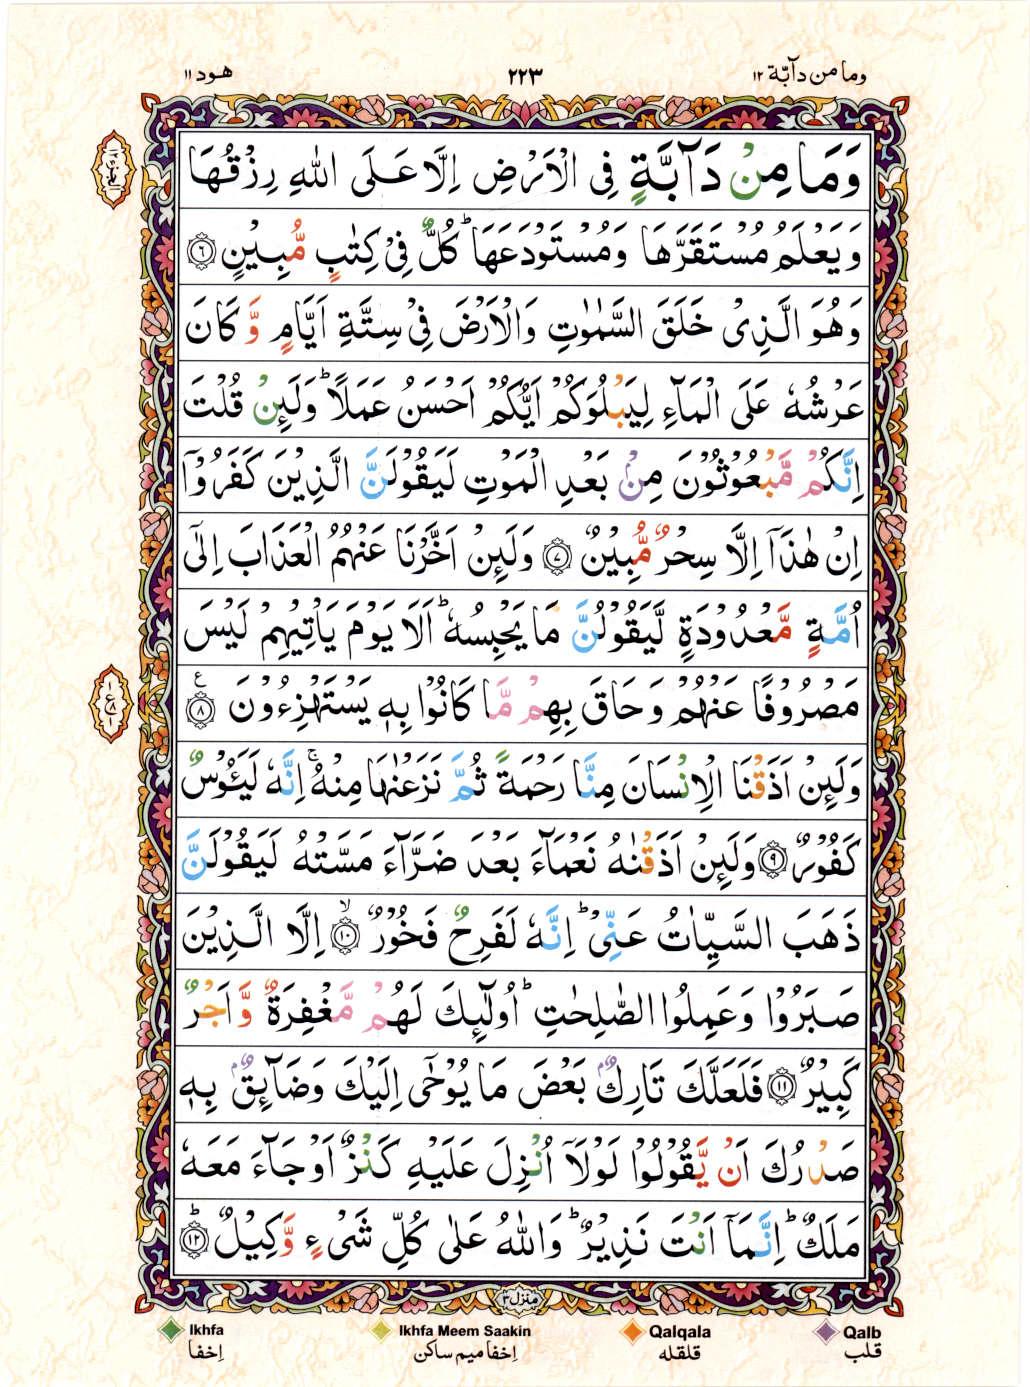 وما من دآبّة ۱۲
۲۲۳
هود ۱۱
وَمَا مِنْ دَآبَّةٍ فِی الْاَرْضِ اِلَّا عَلَی اللّٰهِ رِزْقُهَا
وَیَعْلَمُ مُسْتَقَرَّهَا وَمُسْتَوْدَعَهَا ؕ كُلٌّ فِیْ كِتٰبٍ مُّبِیْنٍ ۶
وَهُوَ الَّذِیْ خَلَقَ السَّمٰوٰتِ وَالْاَرْضَ فِیْ سِتَّةِ اَیَّامٍ وَّ كَانَ
عَرْشُهٗ عَلَی الْمَآءِ لِیَبْلُوَكُمْ اَیُّكُمْ اَحْسَنُ عَمَلًا ؕ وَلَىِٕنْ قُلْتَ
اِنَّكُمْ مَّبْعُوْثُوْنَ مِنْۢ بَعْدِ الْمَوْتِ لَیَقُوْلَنَّ الَّذِیْنَ كَفَرُوْۤا
اِنْ هٰذَاۤ اِلَّا سِحْرٌ مُّبِیْنٌ ۷ وَلَىِٕنْ اَخَّرْنَا عَنْهُمُ الْعَذَابَ اِلٰۤی
اُمَّةٍ مَّعْدُوْدَةٍ لَّیَقُوْلُنَّ مَا یَحْبِسُهٗ ؕ اَلَا یَوْمَ یَاْتِیْهِمْ لَیْسَ
مَصْرُوْفًا عَنْهُمْ وَحَاقَ بِهِمْ مَّا كَانُوْا بِهٖ یَسْتَهْزِءُوْنَ ۸
ع
وَلَىِٕنْ اَذَقْنَا الْاِنْسَانَ مِنَّا رَحْمَةً ثُمَّ نَزَعْنٰهَا مِنْهُ ۚ اِنَّهٗ لَیَـُٔوْسٌ
كَفُوْرٌ ۹ وَلَىِٕنْ اَذَقْنٰهُ نَعْمَآءَ بَعْدَ ضَرَّآءَ مَسَّتْهُ لَیَقُوْلَنَّ
ذَهَبَ السَّیِّاٰتُ عَنِّیْ ؕ اِنَّهٗ لَفَرِحٌ فَخُوْرٌ ۱۰ ۙ اِلَّا الَّذِیْنَ
صَبَرُوْا وَعَمِلُوا الصّٰلِحٰتِ ؕ اُولٰٓىِٕكَ لَهُمْ مَّغْفِرَةٌ وَّاَجْرٌ
كَبِیْرٌ ۱۱ فَلَعَلَّكَ تَارِكٌۢ بَعْضَ مَا یُوْحٰۤی اِلَیْكَ وَضَآىِٕقٌۢ بِهٖ
صَدْرُكَ اَنْ یَّقُوْلُوْا لَوْلَاۤ اُنْزِلَ عَلَیْهِ كَنْزٌ اَوْ جَآءَ مَعَهٗ
مَلَكٌ ؕ اِنَّمَاۤ اَنْتَ نَذِیْرٌ ؕ وَاللّٰهُ عَلٰی كُلِّ شَیْءٍ وَّكِیْلٌ ۱۲ ؕ
منزل ۳
Ikhfa
Ikhfa Meem Saakin
Qalqala
Qalb
اِخفا
اِخفا میم ساکن
قلقله
قلب